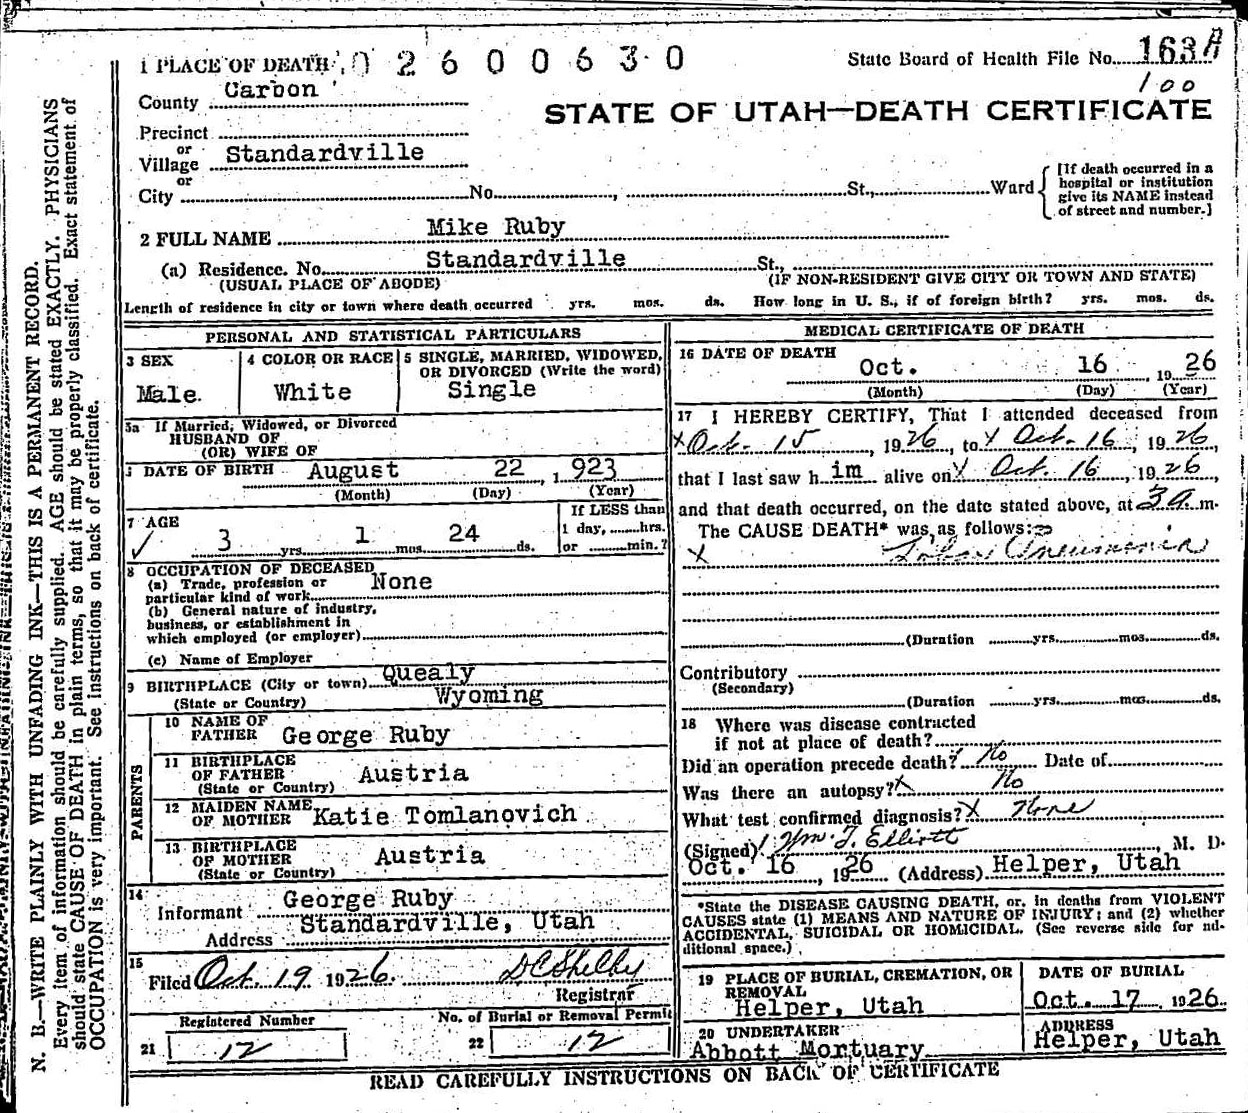 1 PLACE OF DEATH 0 2 6 0 0 6 3 0
State Board of Health File No. 163A
100
County Carbon
STATE OF UTAH—DEATH CERTIFICATE
Precinct
or
Village Standardville
or
City No. , St., Ward
[If death occurred in a
hospital or institution
give its NAME instead
of street and number.]
2 FULL NAME Mike Ruby
(a) Residence. No. Standardville St.,
(USUAL PLACE OF ABODE) (IF NON-RESIDENT GIVE CITY OR TOWN AND STATE)
Length of residence in city or town where death occurred yrs. mos. ds. How long in U. S., if of foreign birth? yrs. mos. ds.
PERSONAL AND STATISTICAL PARTICULARS
3 SEX
Male.
4 COLOR OR RACE
White
5 SINGLE, MARRIED, WIDOWED,
OR DIVORCED (Write the word)
Single
5a If Married, Widowed, or Divorced
HUSBAND OF
(OR) WIFE OF
DATE OF BIRTH August 22 , 1923
(Month) (Day) (Year)
7 AGE
3 yrs. 1 mos. 24 ds.
If LESS than
1 day, hrs.
or min.?
8 OCCUPATION OF DECEASED
(a) Trade, profession or
particular kind of work None
(b) General nature of industry,
business, or establishment in
which employed (or employer)
(c) Name of Employer
9 BIRTHPLACE (City or town) Quealy
(State or Country) Wyoming
PARENTS
10 NAME OF
FATHER George Ruby
11 BIRTHPLACE
OF FATHER Austria
(State or Country)
12 MAIDEN NAME
OF MOTHER Katie Tomlanovich
13 BIRTHPLACE
OF MOTHER Austria
(State or Country)
14
Informant George Ruby
Address Standardville, Utah
15
Filed Oct. 19 1926. D C Shelby
Registrar
Registered Number
21 12
No. of Burial or Removal Permit
22 12
MEDICAL CERTIFICATE OF DEATH
16 DATE OF DEATH
Oct. 16 , 1926
(Month) (Day) (Year)
17 I HEREBY CERTIFY, That I attended deceased from
x Oct. 15 , 1926, to x Oct. 16, 1926,
that I last saw him alive on x Oct. 16, 1926,
and that death occurred, on the date stated above, at 3a m.
The CAUSE DEATH* was as follows:
x Lobar Pneumonia
(Duration yrs. mos. ds.
Contributory
(Secondary)
(Duration yrs. mos. ds.
18 Where was disease contracted
if not at place of death?
Did an operation precede death? No Date of
Was there an autopsy? x No
What test confirmed diagnosis? x None
(Signed) Wm. T. Elliott, M. D.
Oct. 16 , 1926 (Address) Helper, Utah
*State the DISEASE CAUSING DEATH, or, in deaths from VIOLENT
CAUSES state (1) MEANS AND NATURE OF INJURY; and (2) whether
ACCIDENTAL, SUICIDAL OR HOMICIDAL. (See reverse side for ad-
ditional space.)
19 PLACE OF BURIAL, CREMATION, OR
REMOVAL
Helper, Utah
DATE OF BURIAL
Oct. 17 1926
20 UNDERTAKER
Abbott Mortuary
ADDRESS
Helper, Utah
READ CAREFULLY INSTRUCTIONS ON BACK OF CERTIFICATE
N. B.—WRITE PLAINLY WITH UNFADING INK—THIS IS A PERMANENT RECORD.
Every item of information should be carefully supplied. AGE should be stated EXACTLY. PHYSICIANS
should state CAUSE OF DEATH in plain terms, so that it may be properly classified. Exact statement of
OCCUPATION is very important. See instructions on back of certificate.